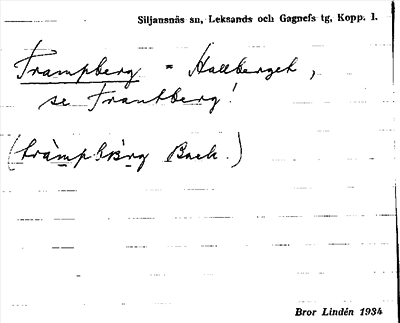 Siljansnäs sn, Leksands och Gagnefs tg, Kopp. l.
Trampberg = Hallberget,
se Trantberg!
(tràmpbærg Back.)
Bror Lindén 1934